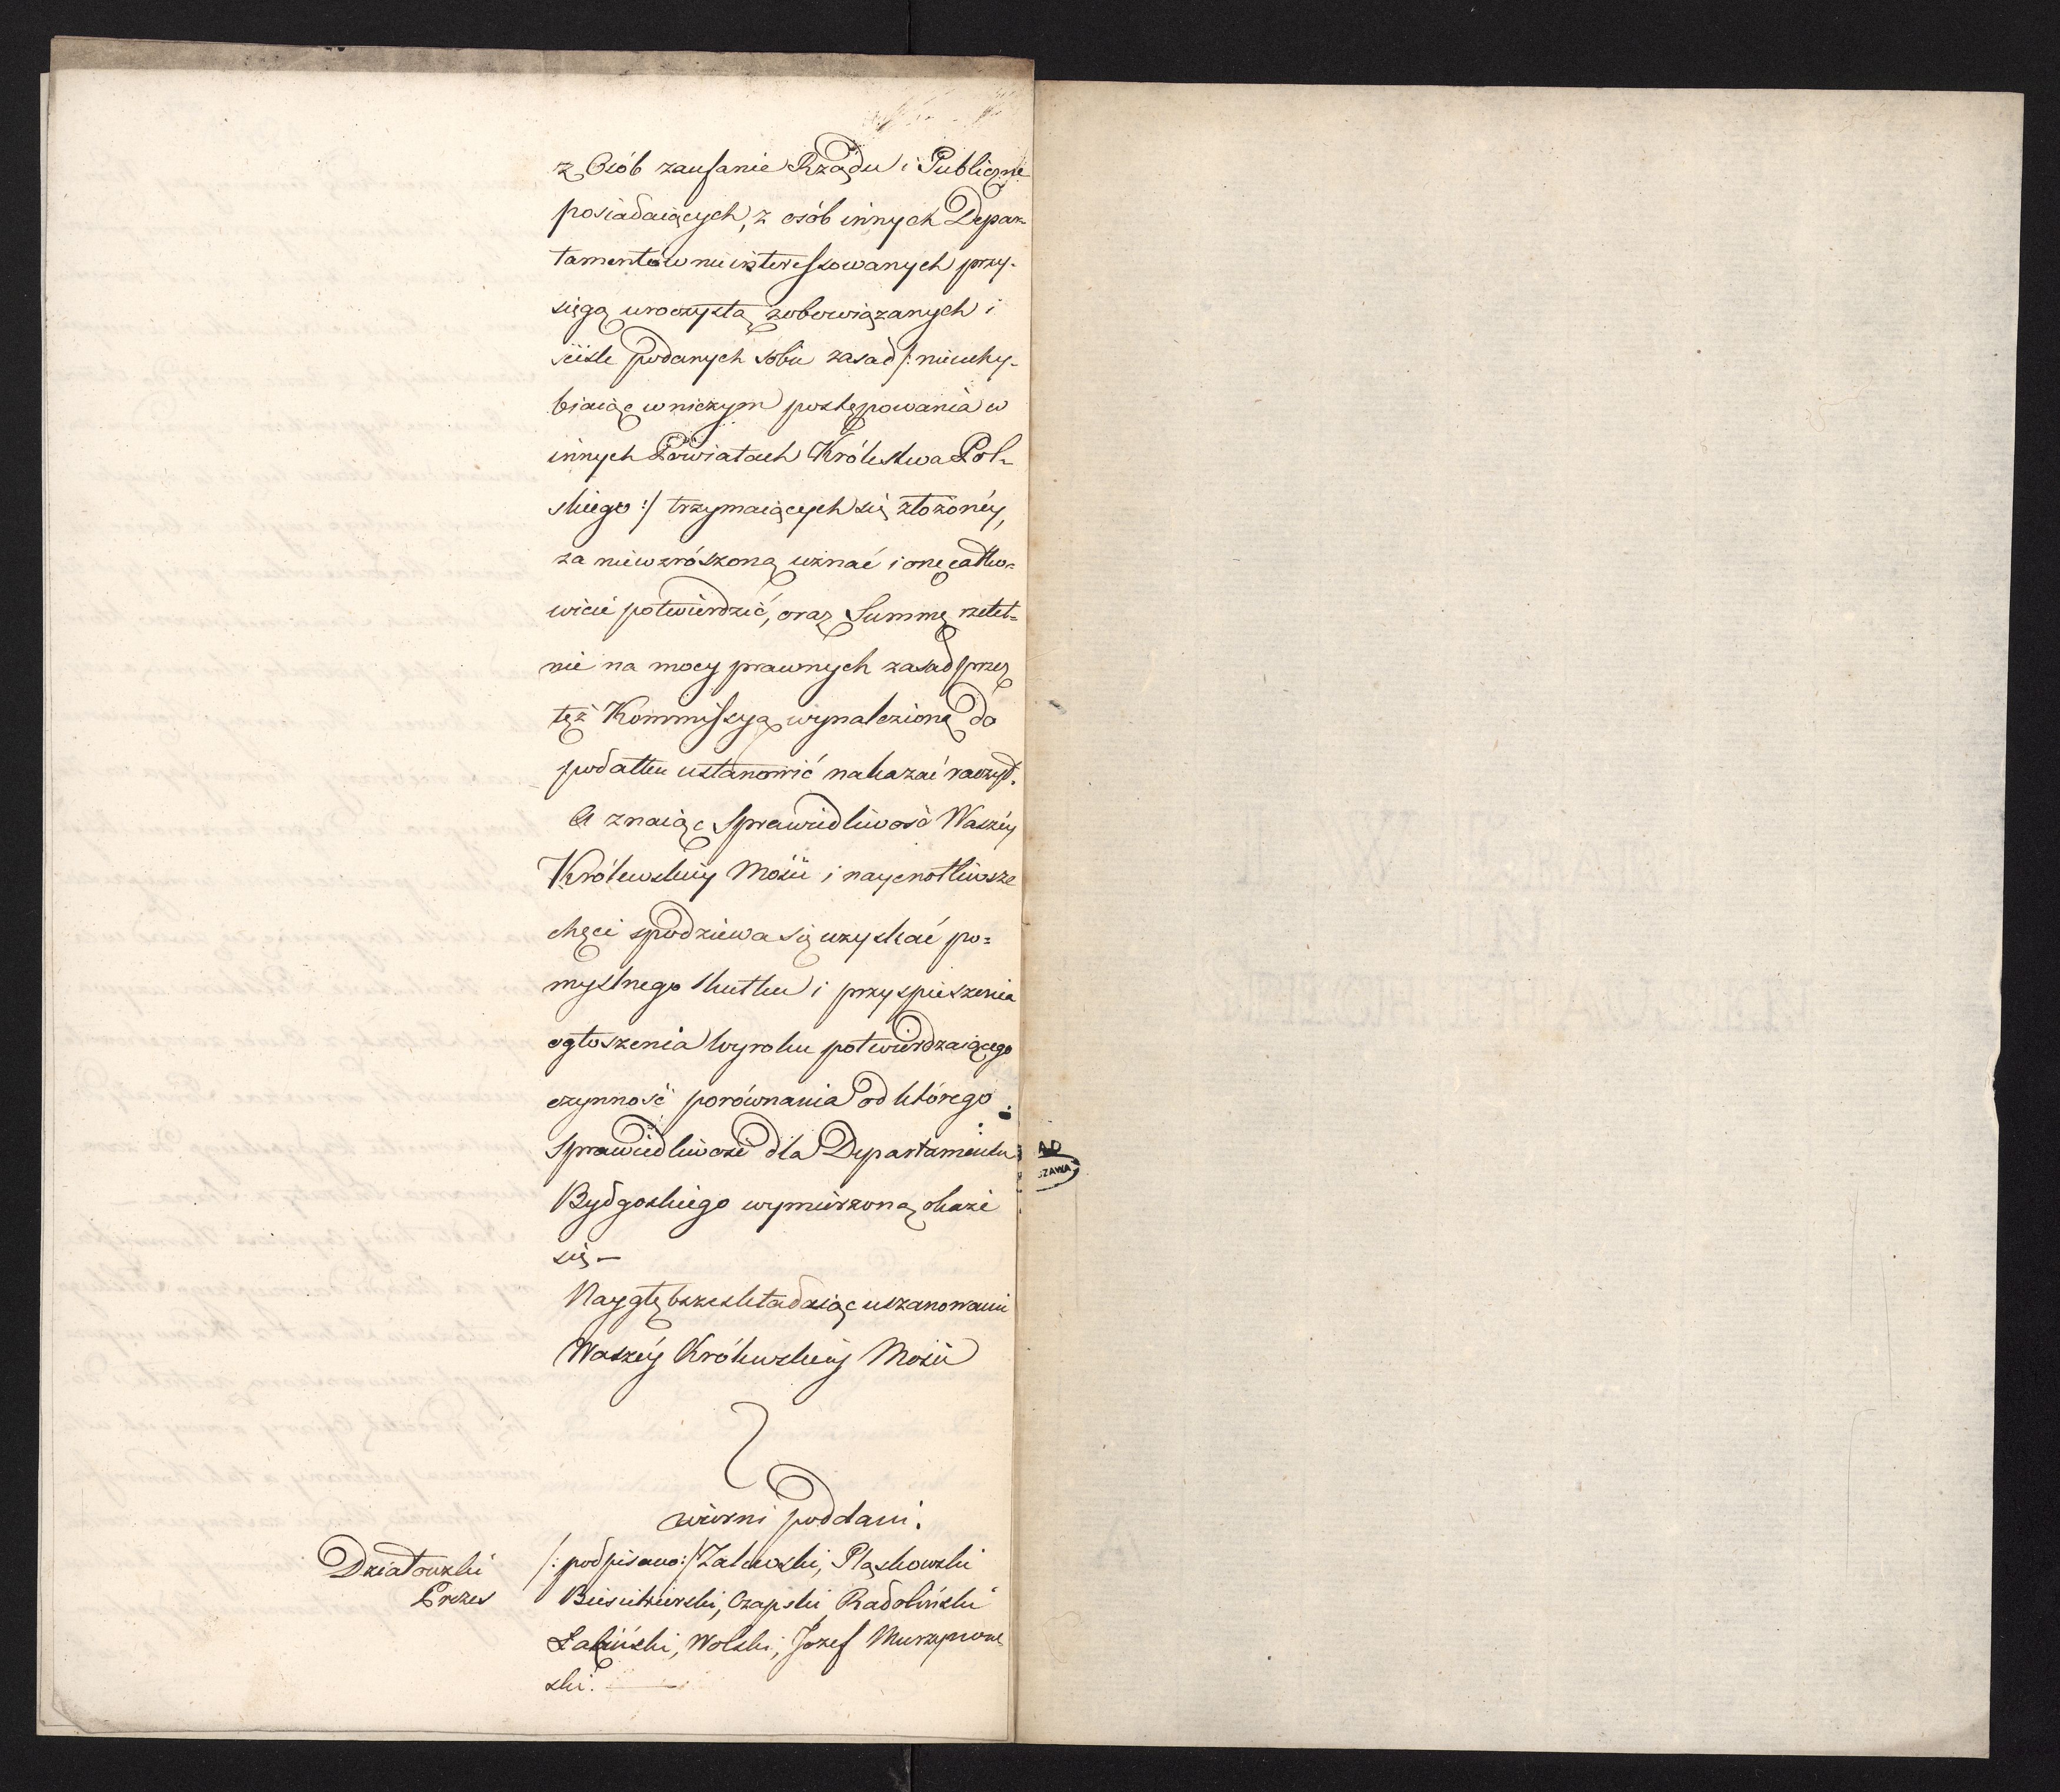 z Osób zaufanie Rządu i Publiczne
posiadaiących, z osób innych Depar-
tamentów nieinteressowanych przy-
sięgą uroczystą zobowiązanych i
ściśle podanych sobie zasad /: nieuchy-
biaiąc w niczym postępowania w
innych Powiatach Królestwa Pol-
skiego :/ trzymaiących się złożonéy,
za niewzrószoną uznać i onę całko-
wicie potwierdzić, oraz Summę rzetel-
nie na mocy prawnych zasad przez
tęż Kommissyą wynalezioną do
podatku ustanowić nakazać raczył.
A znaiąc Sprawiedliwość Waszéy
Królewskiéy Mości i naycnotliwsze
chęci spodziewa się uzyskać po-
myslnego skutku i przyspieszenia
ogłoszenia Wyroku potwierdzaiącego
czynność porównania od którego
Sprawiedliwość dla Departamentu
Bydgoskiego wymierzoną okaże
się —
Naygłębsze składaiąc uszanowanie
Waszéy Królewskiéy Mości
wierni poddani.
Działowski
Prezes
/: podpisano :/ Zalewski, Pląskowski
Biesiekierski, Czapski Radoliński
Łakiński, Wolski, Jozef Murzynow-
ski.
AD
SZAWA